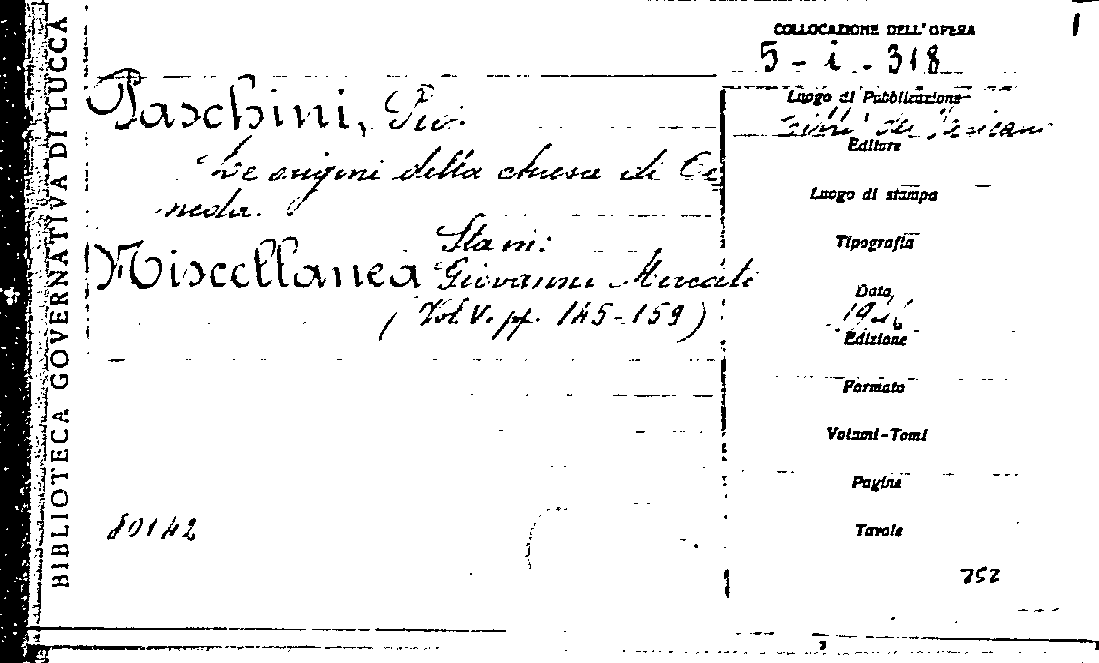 BIBLIOTECA GOVERNATIVA DI LUCCA
COLLOCAZIONE DELL'OPERA
5-i-318
Paschini, Pio.
Le origini della chiesa di Ce
neda.
Sta in:
Miscellanea Giovanni Mercati
(Vol. V. pp. 145-159)
80142
Luogo di Pubblicazione
Città del Vaticano
Editore
Luogo di stampa
Tipografia
Data
1946
Edizione
Formato
Volumi-Tomi
Pagine
Tavole
752